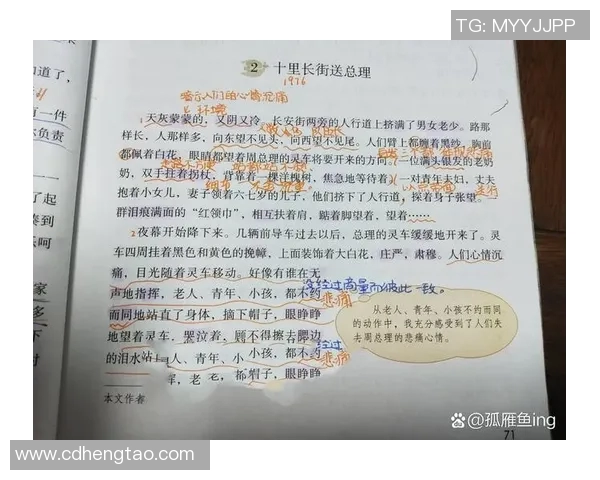 TG: MYYJJPP
2 十里长街送总理
1976
暗示人们的心情沉痛
环境
道了，
1天灰蒙蒙的，又阴又冷。长安街两旁的人行道上挤满了男女老少。路那
有一件
样长，人那样多，向东望不见头，向西望不见尾。人们臂上都缠着黑纱，胸前
负责
都佩着白花，眼睛都望着周总理的灵车将要开来的方向。一位满头银发的老奶
奶，双手拄着拐杖，背靠着一棵洋槐树，焦急地等待着。一对青年夫妇，丈夫
抱着小女儿，妻子领着六七岁的儿子，他们挤下了人行道，探着身子张望。
群泪痕满面的“红领巾”，相互扶着肩，踮着脚望着，望着……
起了
2夜幕开始降下来。几辆前导车过去以后，总理的灵车缓缓地开来了。灵
凑到
车四周挂着黑色和黄色的挽幛，上面装饰着大白花，庄严，肃穆。人们心情沉
呵
痛，目光随着灵车移动。好像有谁在无
没经过商量而彼此一致。
家
声地指挥，老人、青年、小孩，都不约
悲痛
多
而同地站直了身体，摘下帽子，眼睁睁
下
地望着灵车，哭泣着，顾不得擦去腮边
的泪水站 人、青年、小 小孩，都不约
经过
悲痛
挥，老 都帽子，眼睁睁
从老人、青年、小孩不约而同
的动作中，我充分感受到了人们失
去周总理的悲痛心情。
本文作者
71
@孤雁鱼ing
www.cdhengtao.com